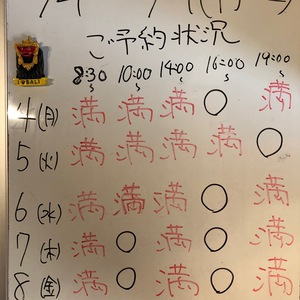 ご予約状況
8:30~ 10:00~ 14:00~ 16:00~ 19:00~
4(月) 満 満 満 ○ 満
5(火) 満 満 満 満 ○
6(水) 満 満 満 ○ 満
7(木) 満 ○ 満 ○ 満
8(金) 満 ○ 満 ○ 満
I ♥ BALI